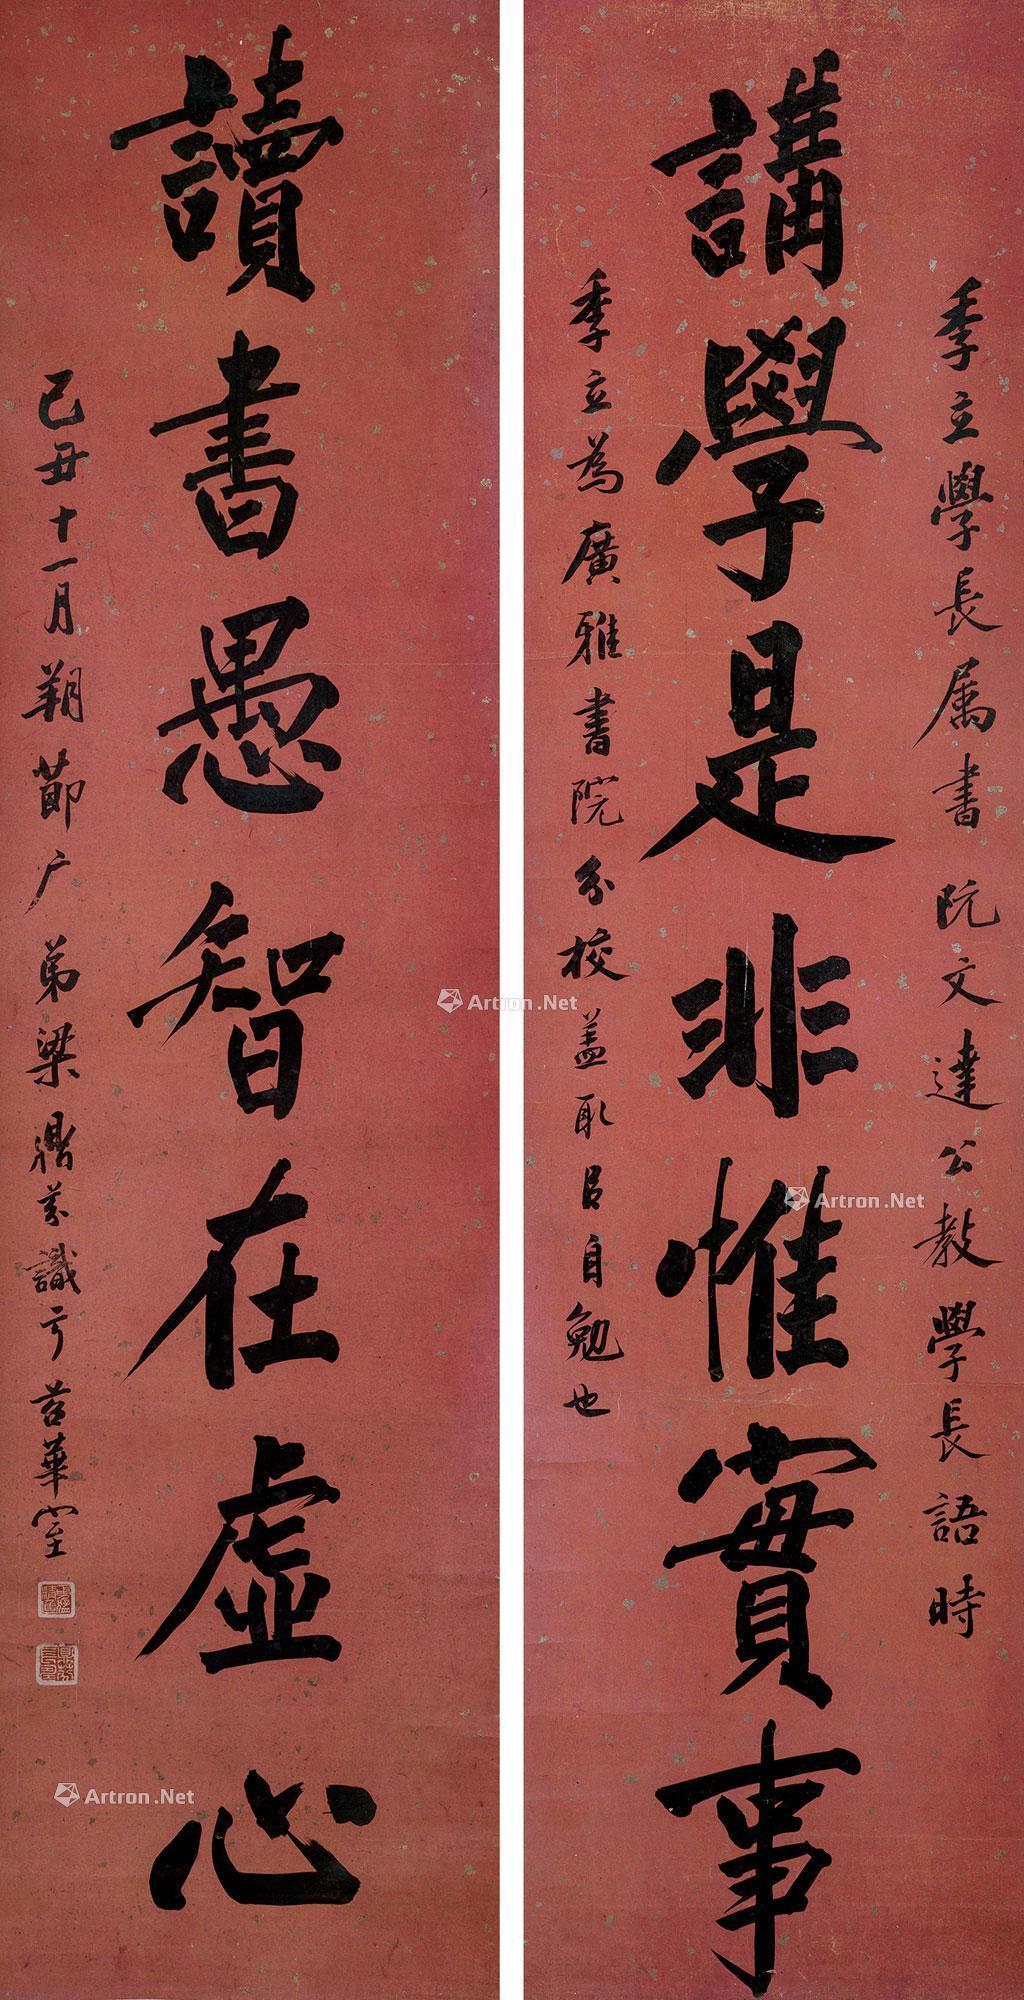 講學是非惟實事
季立學長属書阮文達公教學長語時
季立為廣雅書院分校蓋取㠯自勉也
讀書愚智在虛心
己丑十一月朔節广弟梁鼎芬識于苕華室
Artron.Net
Artron.Net
Artron.Net